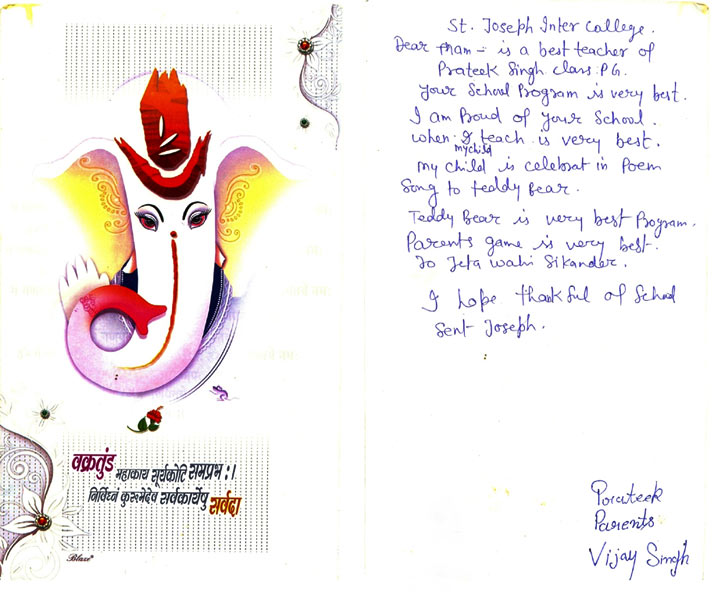 वक्रतुंड महाकाय सूर्यकोटि समप्रभ:।
निर्विघ्नं कुरूमेदेव सर्वकार्येषु सर्वदा
Blaze
St. Joseph Inter College.
Dear mam - is a best teacher of
Prateek Singh class PG.
Your School Program is very best.
I am Proud of your School.
when I teach is very best.
my child
my child is celebrat in Poem
Song to teddy Bear.
Teddy Bear is very best Program.
Parents game is very best.
Jo Jeta wahi Sikander.
I hope thankful of School
Sent Joseph.
Prateek
Parents
Vijay Singh